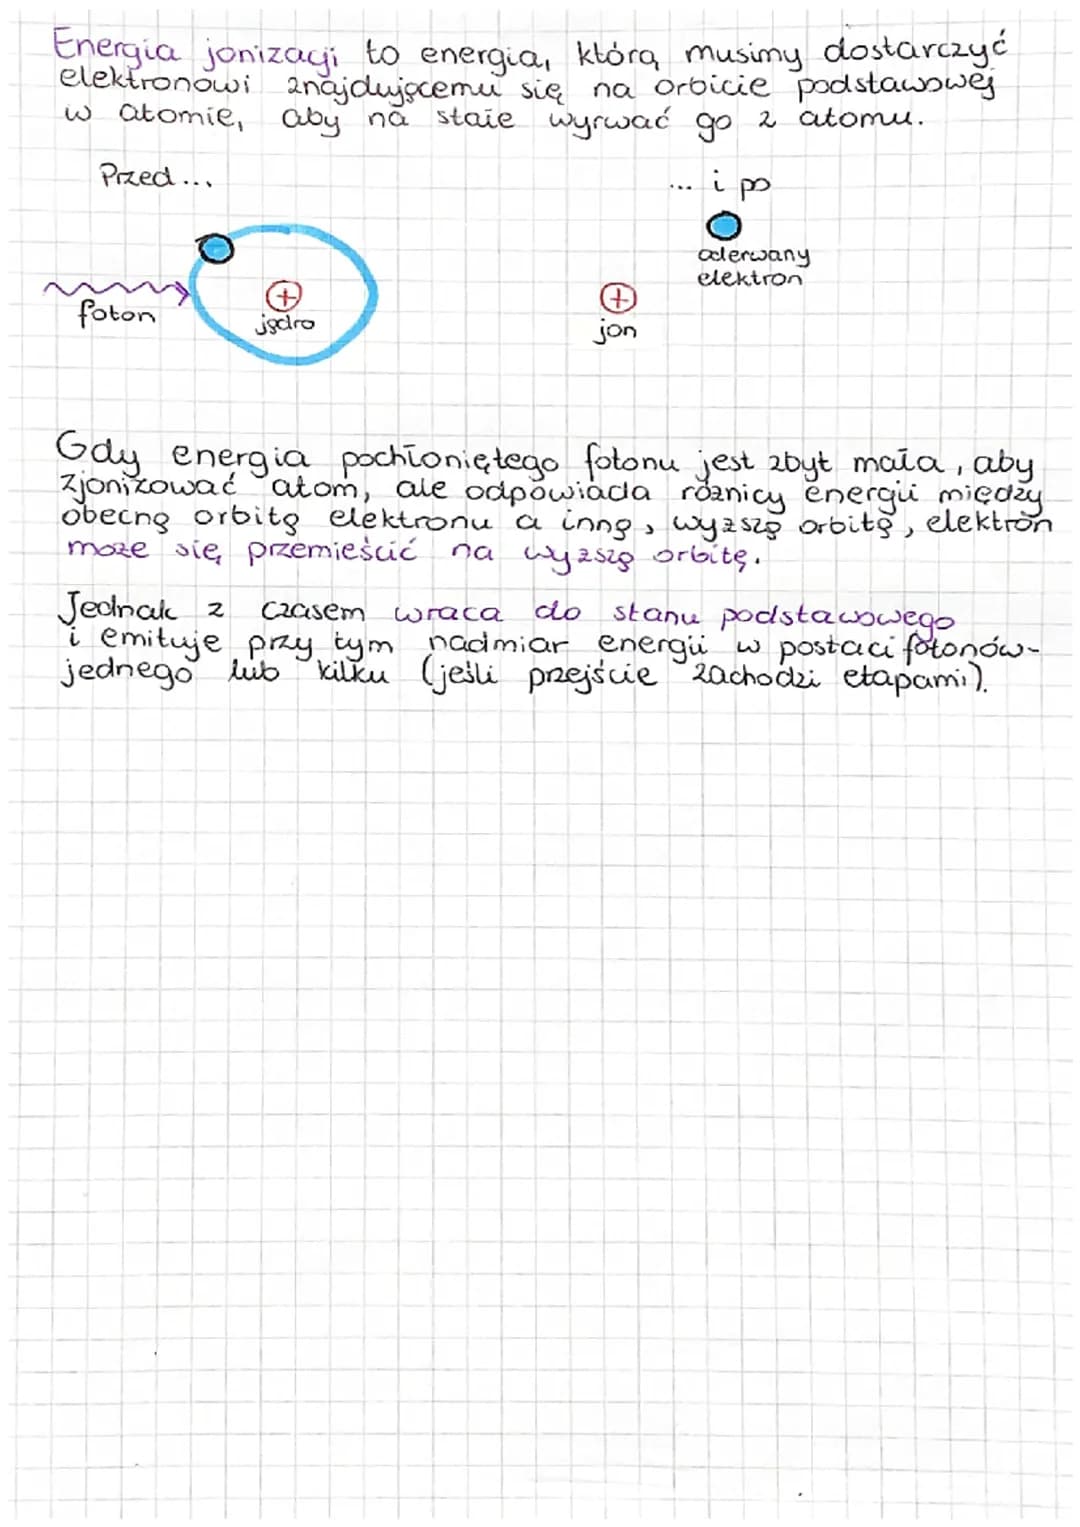 Energia jonizacji to energia, którą musimy dostarczyć
elektronowi znajdującemu się na orbicie podstawowej
w atomie, aby na stałe wyrwać go z atomu.
Przed...
... i po
oderwany
elektron
foton
jądro
jon
Gdy energia pochłoniętego fotonu jest zbyt mała, aby
zjonizować atom, ale odpowiada różnicy energii między
obecną orbitą elektronu a inną, wyższą orbitą, elektron
może się przemieścić na wyższą orbitę.
Jednak z czasem wraca do stanu podstawowego
i emituje przy tym nadmiar energii w postaci fotonów-
jednego lub kilku (jeśli przejście zachodzi etapami).